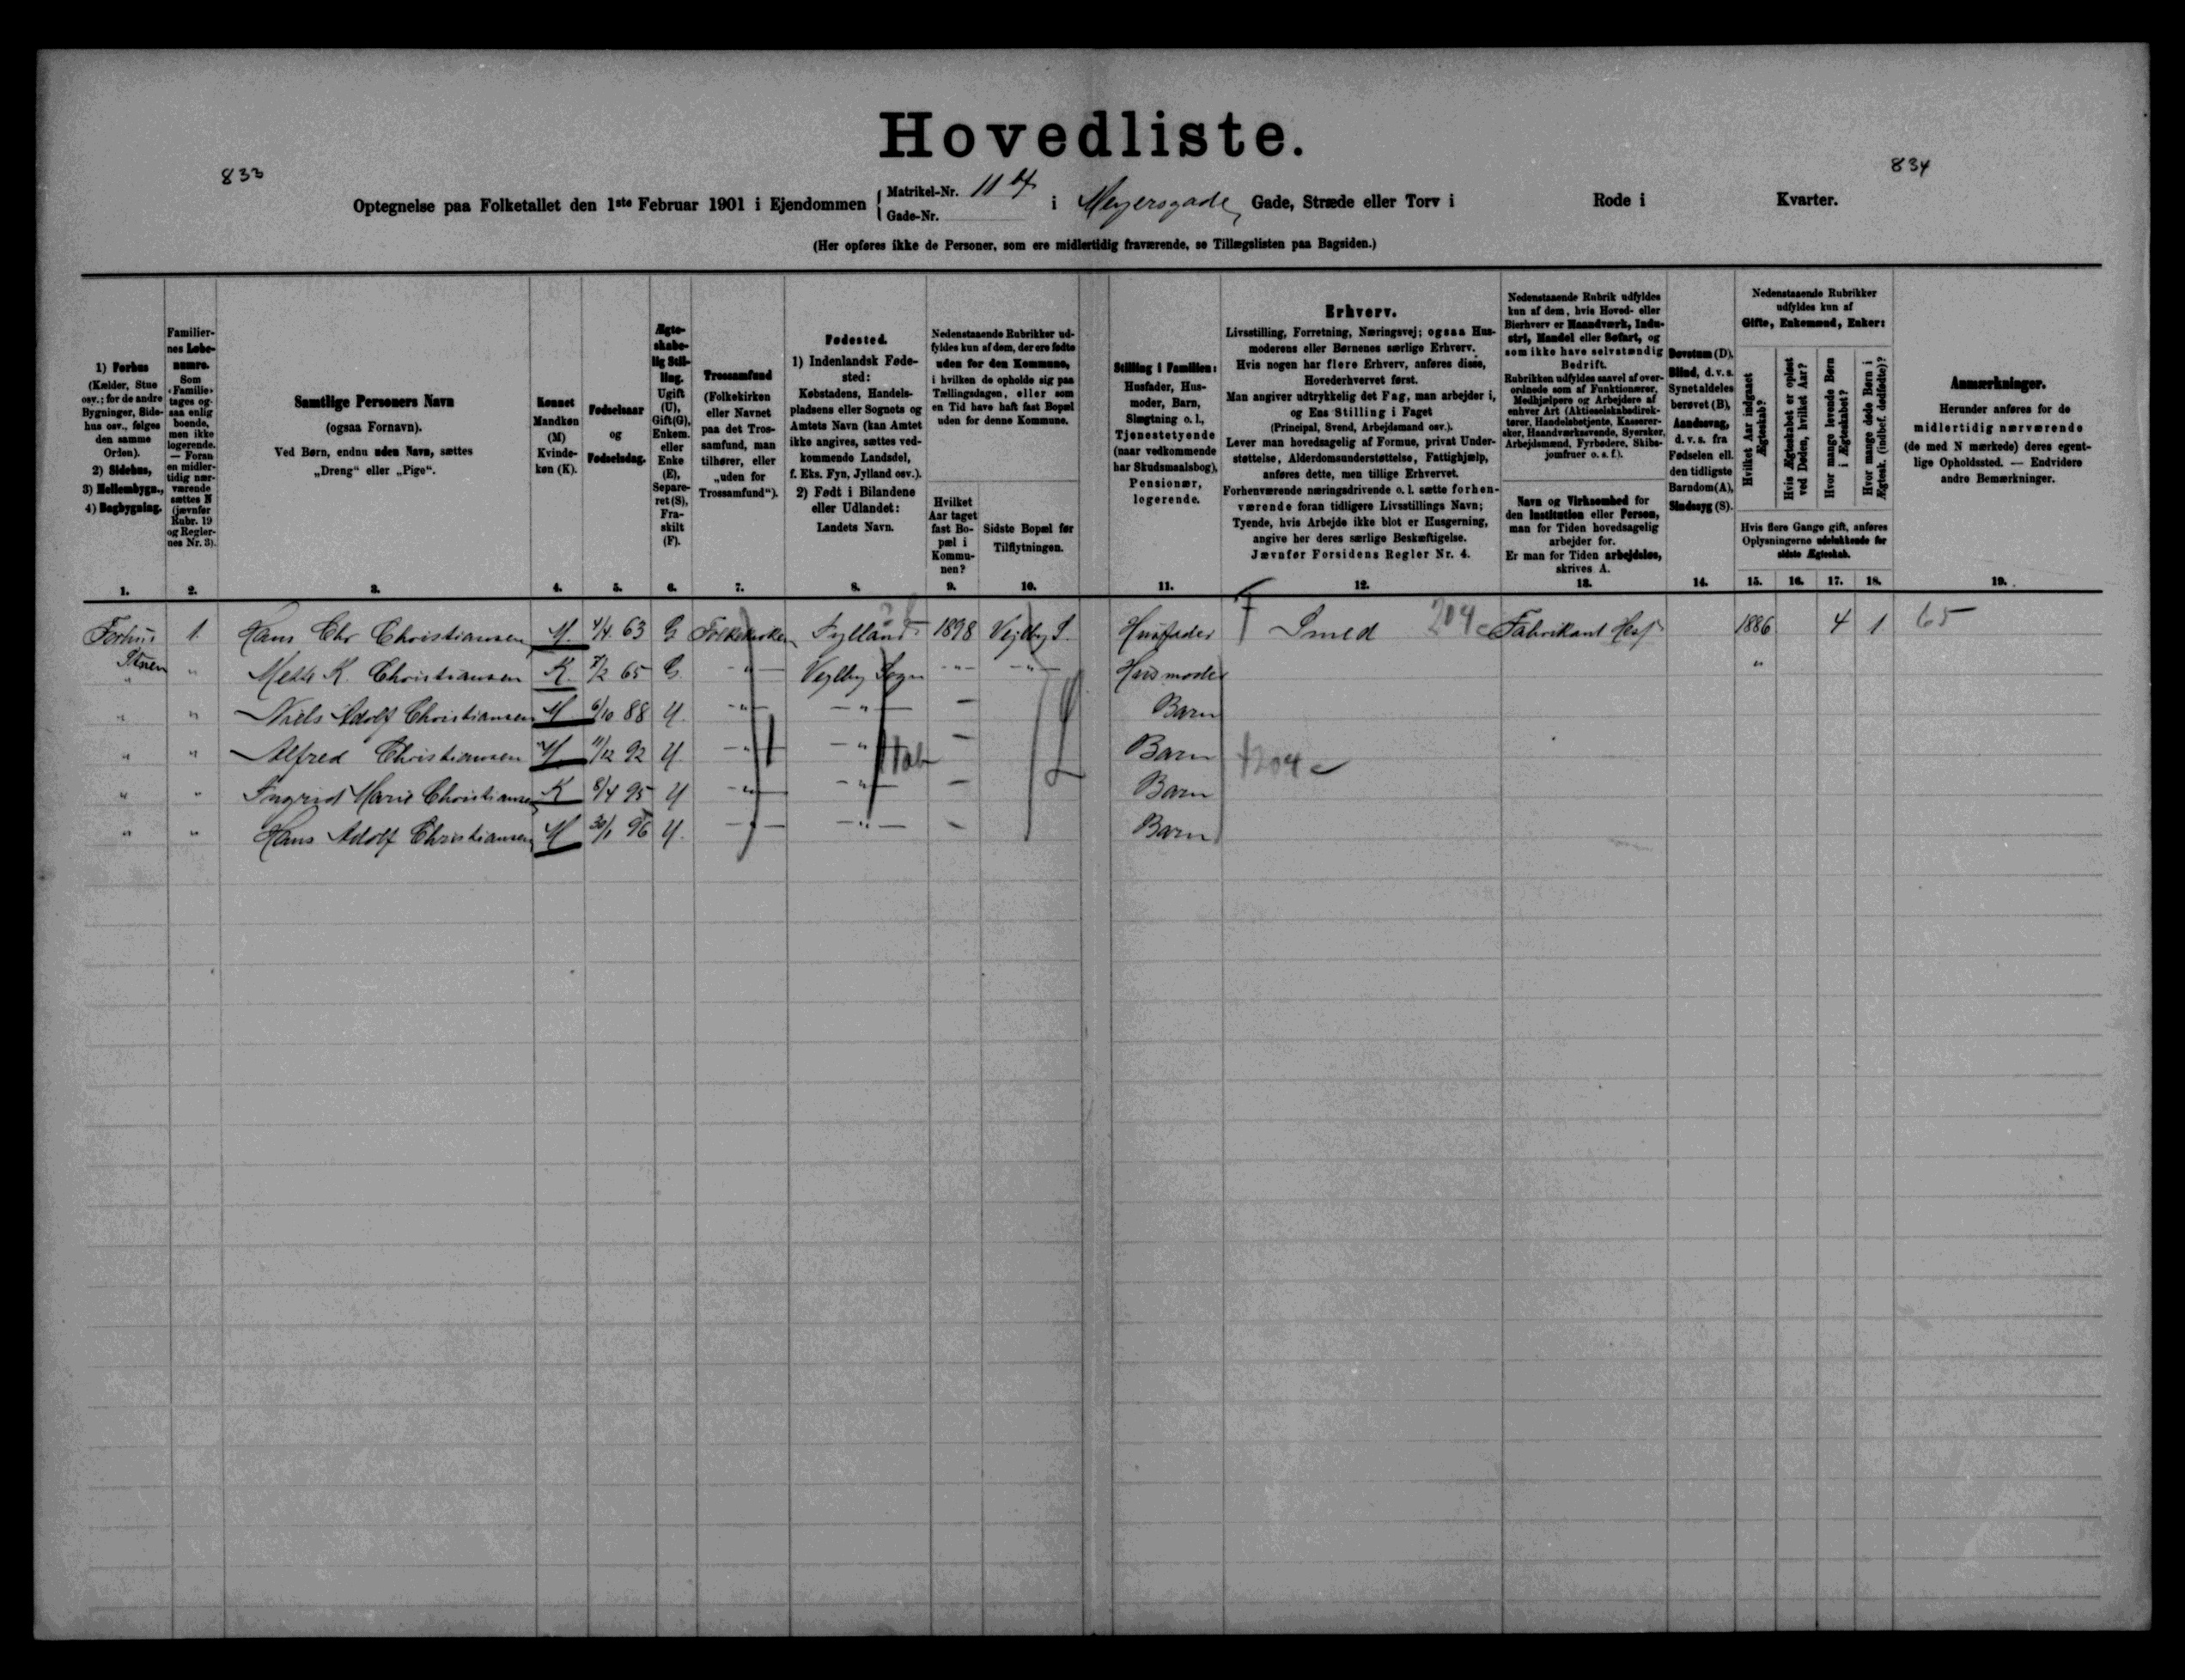 Hovedliste.
833
834
Optegnelse paa Folketallet den 1ste Februar 1901 i Ejendommen { Matrikel-Nr. 11 Gade-Nr. i Meyersgade Gade, Stræde eller Torv i Rode i Kvarter.
(Her opføres ikke de Personer, som ere midlertidig fraværende, se Tillægslisten paa Bagsiden.)
1) Forhus
(Kælder, Stue
osv.; for de andre
Bygninger, Side-
hus osv., følges
den samme
Orden).
2) Sidehus,
3) Mellembygn.,
4) Bagbygning.
1.
Familier-
nes Løbe-
numre.
Som
«Familie»
tages og-
saa enlig
boende,
men ikke
logerende.
— Foran
en midler-
tidig nær-
værende
sættes N
(jævnfør
Rubr. 19
og Regler-
nes Nr. 3).
2.
Samtlige Personers Navn
(ogsaa Fornavn).
Ved Børn, endnu uden Navn, sættes
„Dreng“ eller „Pige“.
3.
Kønnet
Mandkøn
(M)
Kvinde-
køn (K).
4.
Fødselsaar
og
Fødselsdag.
5.
Ægte-
skabe-
lig Stil-
ling.
Ugift
(U),
Gift(G),
Enkem.
eller
Enke
(E),
Separe-
ret (S),
Fra-
skilt
(F).
6.
Trossamfund
(Folkekirken
eller Navnet
paa det Tros-
samfund, man
tilhører, eller
„uden for
Trossamfund“).
7.
Fødested.
1) Indenlandsk Føde-
sted:
Købstadens, Handels-
pladsens eller Sognets og
Amtets Navn (kan Amtet
ikke angives, sættes ved-
kommende Landsdel,
f. Eks. Fyn, Jylland osv.).
2) Født i Bilandene
eller Udlandet:
Landets Navn.
8.
Nedenstaaende Rubrikker ud-
fyldes kun af dem, der ere fødte
uden for den Kommune,
i hvilken de opholde sig paa
Tællingsdagen, eller som
en Tid have haft fast Bopæl
uden for denne Kommune.
Hvilket
Aar taget
fast Bo-
pæl i
Kommu-
nen?
9.
Sidste Bopæl før
Tilflytningen.
10.
Stilling i Familien:
Husfader, Hus-
moder, Barn,
Slægtning o. l.,
Tjenestetyende
(naar vedkommende
har Skudsmaalsbog),
Pensionær,
logerende.
11.
Erhverv.
Livsstilling, Forretning, Næringsvej; ogsaa Hus-
moderens eller Børnenes særlige Erhverv.
Hvis nogen har flere Erhverv, anføres disse,
Hovederhvervet først.
Man angiver udtrykkelig det Fag, man arbejder i,
og Ens Stilling i Faget
(Principal, Svend, Arbejdsmand osv.).
Lever man hovedsagelig af Formue, privat Under-
støttelse, Alderdomsunderstøttelse, Fattighjælp,
anføres dette, men tillige Erhvervet.
Forhenværende næringsdrivende o. l. sætte forhen-
værende foran tidligere Livsstillings Navn;
Tyende, hvis Arbejde ikke blot er Husgerning,
angive her deres særlige Beskæftigelse.
Jævnfør Forsidens Regler Nr. 4.
12.
Nedenstaaende Rubrik udfyldes
kun af dem, hvis Hoved- eller
Bierhverv er Haandværk, Indu-
stri, Handel eller Søfart, og
som ikke have selvstændig
Bedrift.
Rubrikken udfyldes saavel af over-
ordnede som af Funktionærer,
Medhjælpere og Arbejdere af
enhver Art (Aktieselskabsdirek-
tører, Handelsbetjente, Kasserer-
sker, Haandværkssvende, Syersker,
Arbejdsmænd, Fyrbødere, Skibs-
jomfruer o. s. f.).
Navn og Virksomhed for
den Institution eller Person,
man for Tiden hovedsagelig
arbejder for.
Er man for Tiden arbejdsløs,
skrives A.
13.
Døvstum (D),
Blind, d. v. s.
Synet aldeles
berøvet (B),
Aandssvag,
d. v. s. fra
Fødselen ell.
den tidligste
Barndom (A),
Sindssyg (S).
14.
Nedenstaaende Rubrikker
udfyldes kun af
Gifte, Enkemænd, Enker:
Hvilket Aar indgaaet
Ægteskab?
Hvis Ægteskabet er opløst
ved Døden, hvilket Aar?
Hvor mange levende Børn
i Ægteskabet?
Hvor mange døde Børn i
Ægtesk. (indbef. dødfødte)?
Hvis flere Gange gift, anføres
Oplysningerne udelukkende for
sidste Ægteskab.
15. 16. 17. 18.
Anmærkninger.
Herunder anføres for de
midlertidig nærværende
(de med N mærkede) deres egent-
lige Opholdssted. — Endvidere
andre Bemærkninger.
19.
Forhus 1. Hans Chr Christiansen M. 4/4 63 G Folkekirken Jylland 1898 Vejlby S. Husfader Smed 204 c Fabrikant 1886 4 1 65
Stuen " Mette K. Christiansen K. 7/2 65 G. -"- Vejlby Sogn -"- -"- Husmoder "
" " Niels Adolf Christiansen M 6/10 88 U. -"- -"- - Barn
" " Alfred Christiansen M 11/12 92 U. -"- -"- - Barn 204 c
" " Ingrid Marie Christiansen K 8/4 95 U -"- -"- - Barn
" " Hans Adolf Christiansen M 30/1 96 U. -"- -"- - Barn